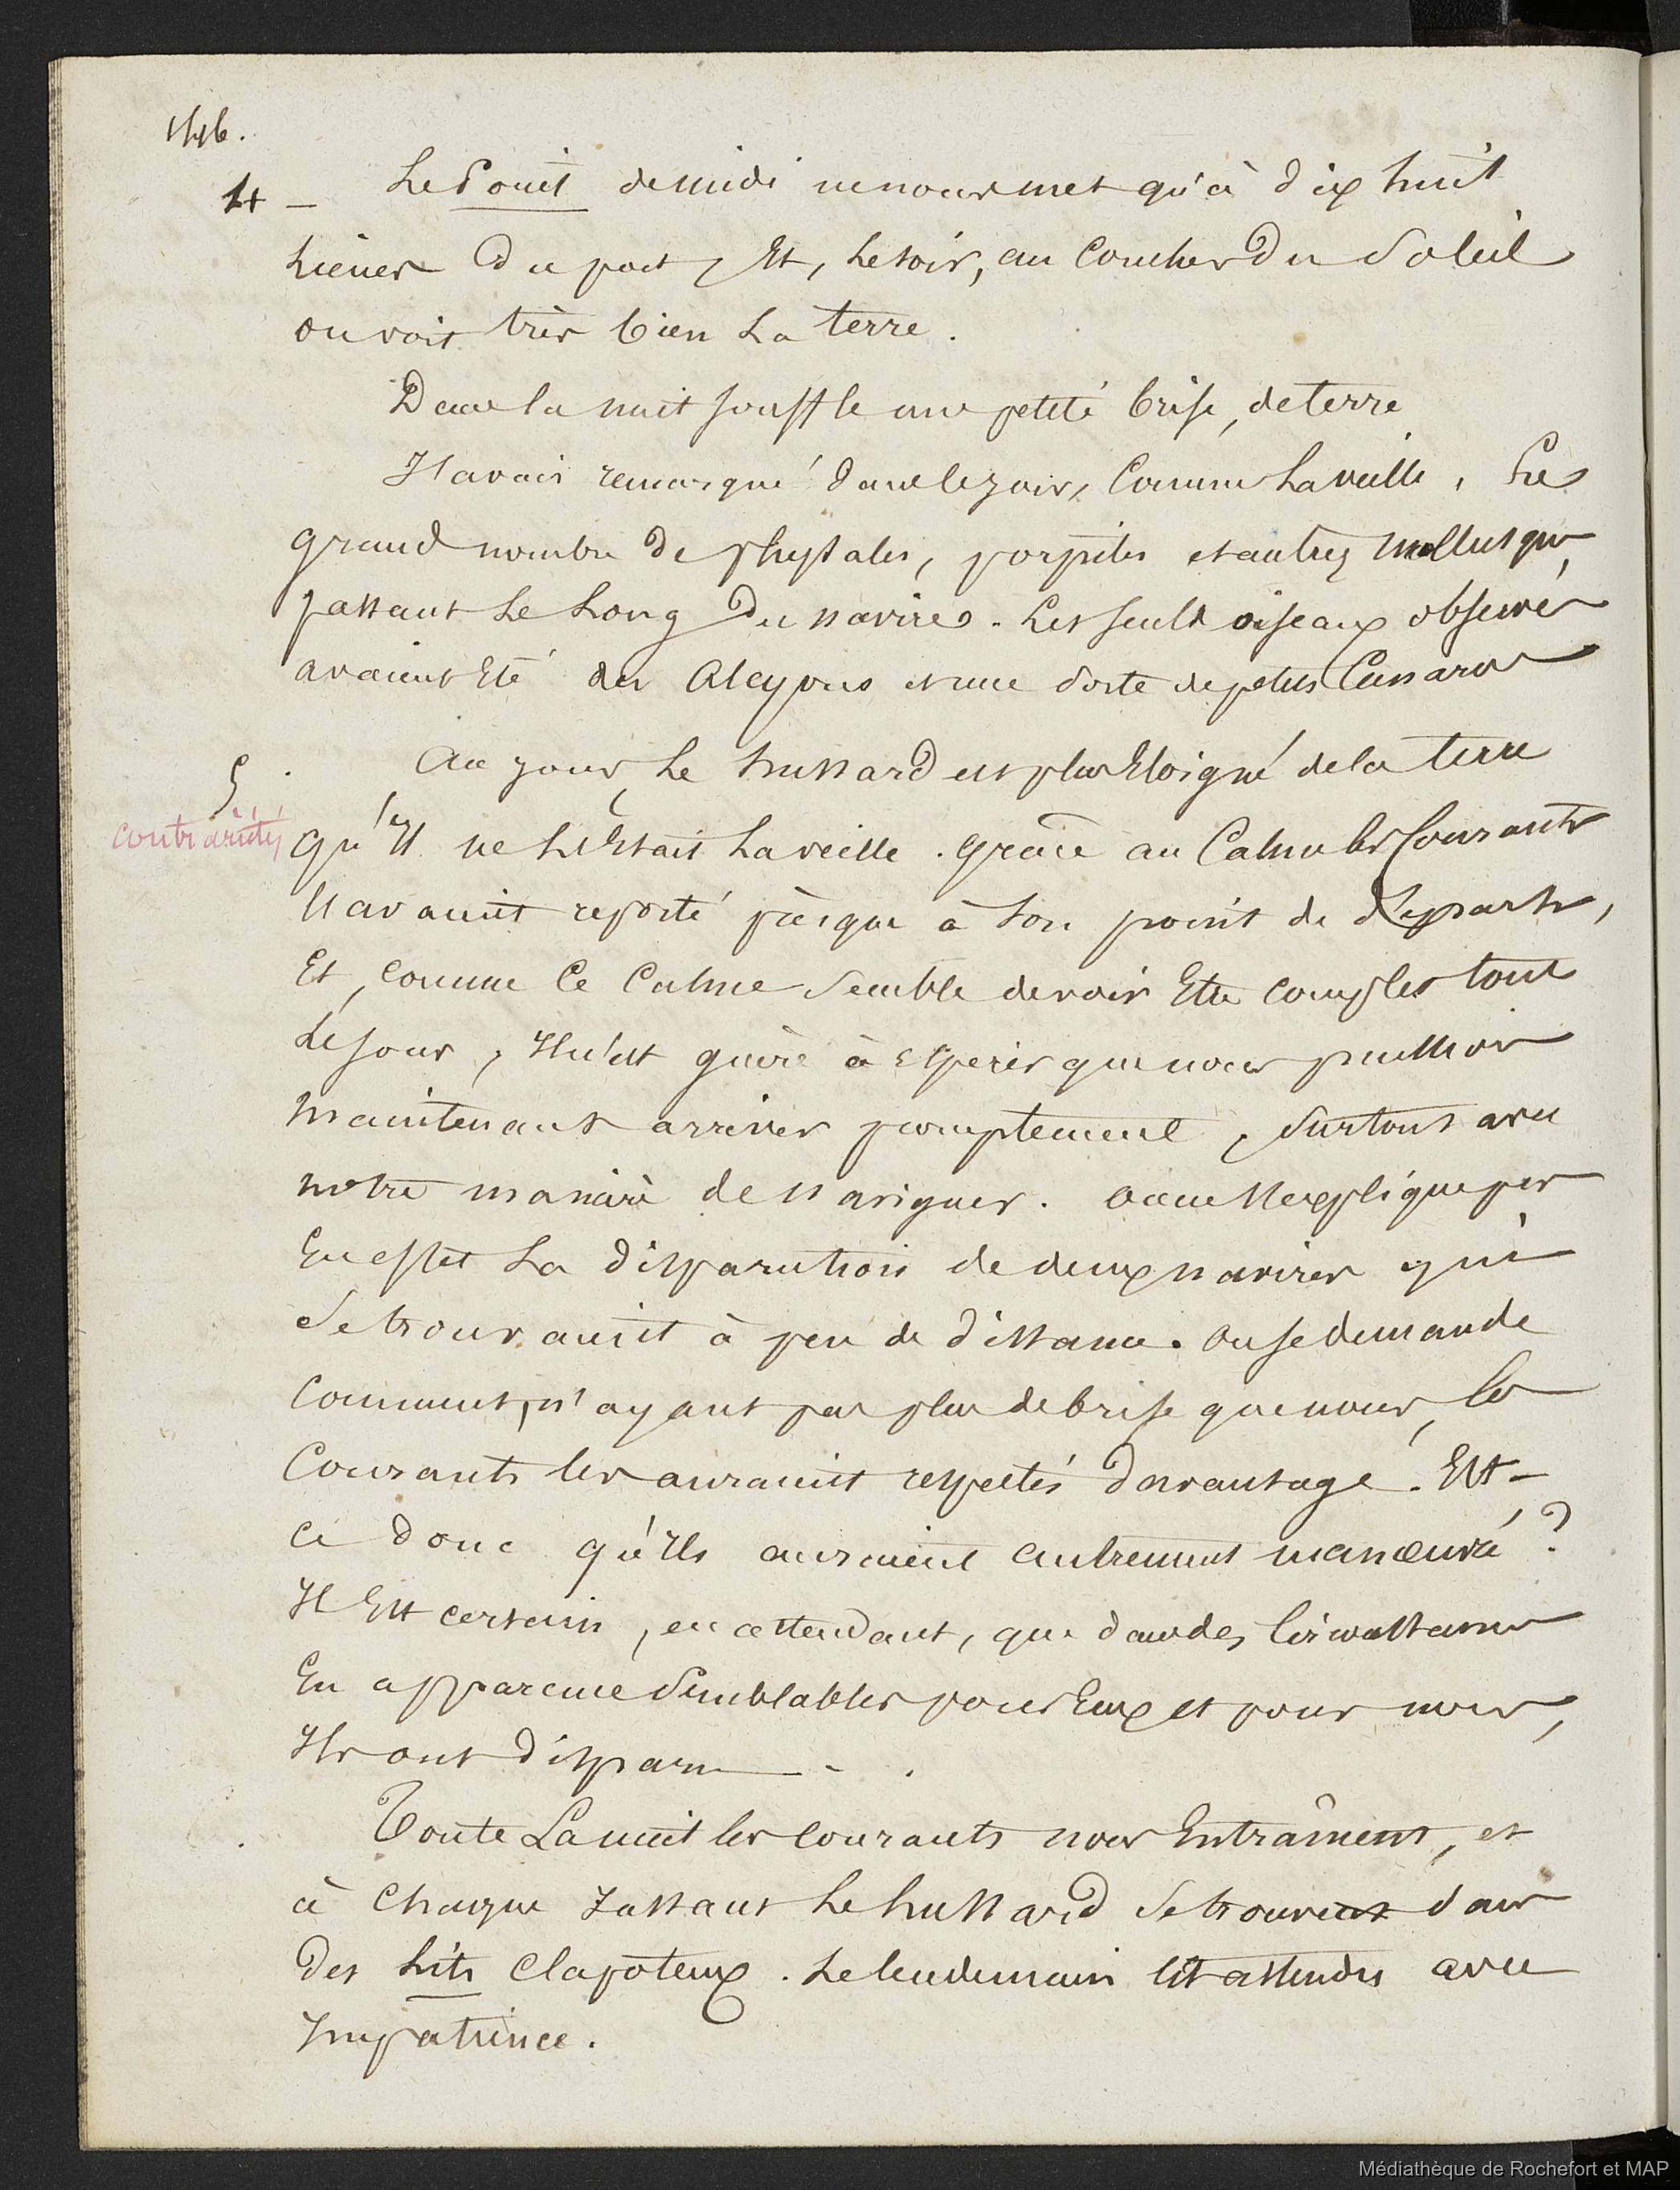 146.
4 – Le Point de midi ne nous met qu'à dix huit
Lieues du port, Et, Le soir, au Coucher Du Soleil
on voit très bien La terre.
Dans la nuit souffle une petite brise, de terre
J'avais remarqué dans le jour, Comme La veille,
grand nombre de physales, porpites et autres Mollusques,
passant Le Long Du navire. Les seuls oiseaux observés
avaient Eté des Alcyons et une sorte de petits
5. Au jour, Le hussard est plus Eloigné de la terre
contrariétés
qu'Il ne L'Etait La veille. grâce au Calme les Courants
l'avaient reporté presque à son point de départ,
Et, comme Ce Calme Semble devoir Etre complet tout
Le jour, Il n'est guère à Espérer que nous puissions
Maintenant arriver promptement, Surtout avec
notre manière de Naviguer. On ne s'explique pas
En effet La Disparution de deux navires qui
Se trouvaient à peu de distance. On se demande
Comment, n'ayant pas plus de brise que nous, les
Courants les auraient respectés Davantage. Est-
ce donc qu'Ils auraient autrement manœuvré ?
Il Est certain, en attendant, que dans des Circonstances
En apparence Semblables pour Eux et pour nous,
Ils ont Disparu – .
Toute La nuit les courants nous Entraînent, et
à Chaque Instant Le hussard Se trouve dans
Des Lits Clapoteux. Le lendemain Est attendu avec
Impatience.
Médiathèque de Rochefort et MAP